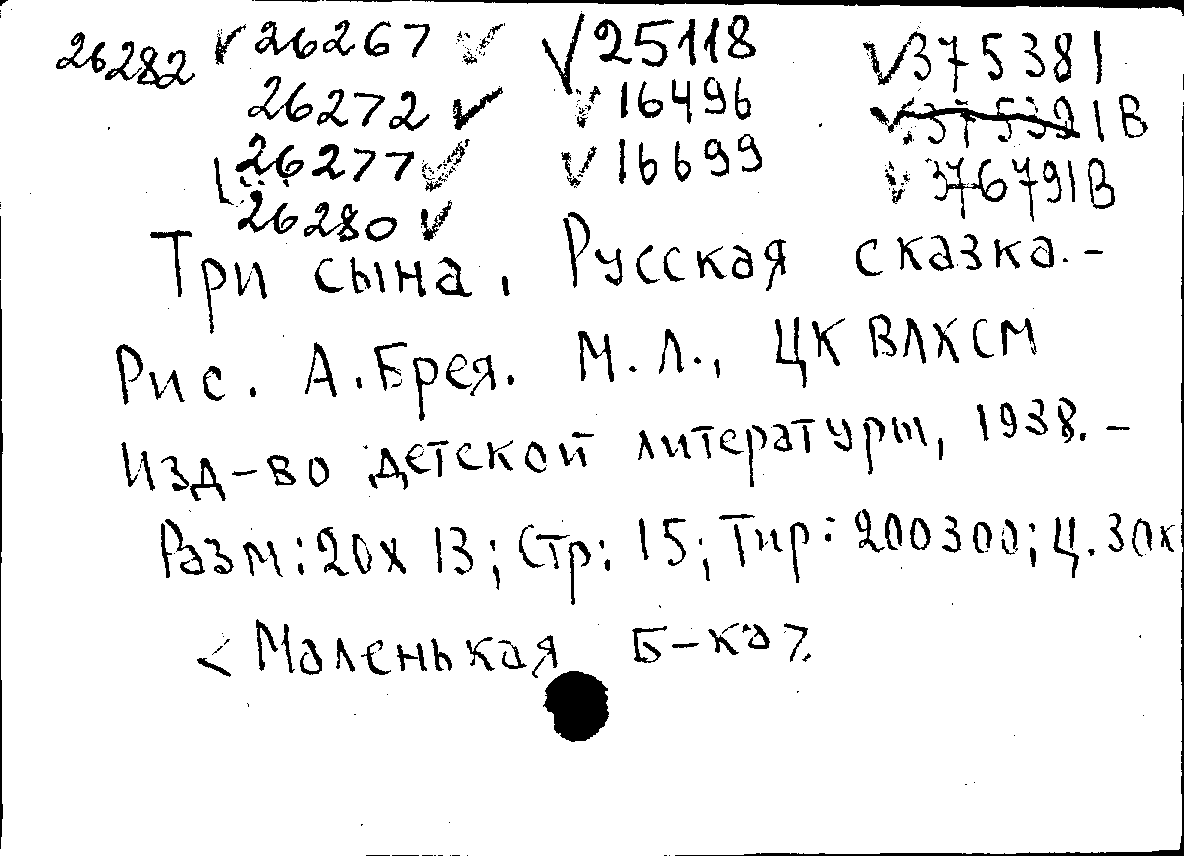 26282 √26267 √ √25118 √375381
26272 √ √16496 √375321В
26277 √ √16699 √376791В
26280 √
Три сына. Русская сказка.-
Рис. А.Брея. М.Л., ЦК ВЛКСМ
Изд-во детской литературы, 1938.-
Разм: 20х13; Стр: 15; Тир: 200300; Ц.30к
<Маленькая Б-ка>.